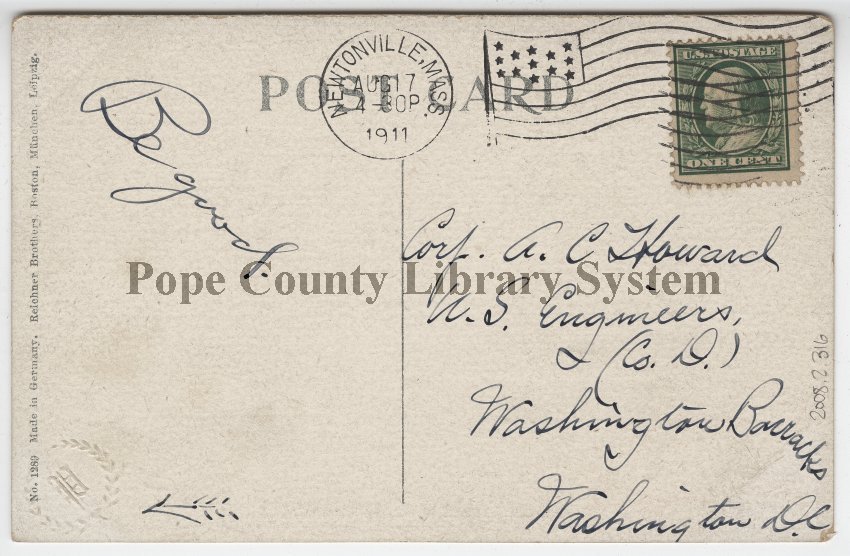 POST CARD
NEWTONVILLE, MASS.
AUG 17
4-30P
1911
U.S. POSTAGE
ONE CENT
Be good.
Corp. A. C. Howard
U. S. Engineers,
(Co. D.)
Washington Barracks
Washington D.C.
Pope County Library System
2008.2.316
No. 1289 Made in Germany. Reichner Brothers. Boston, München, Leipzig.